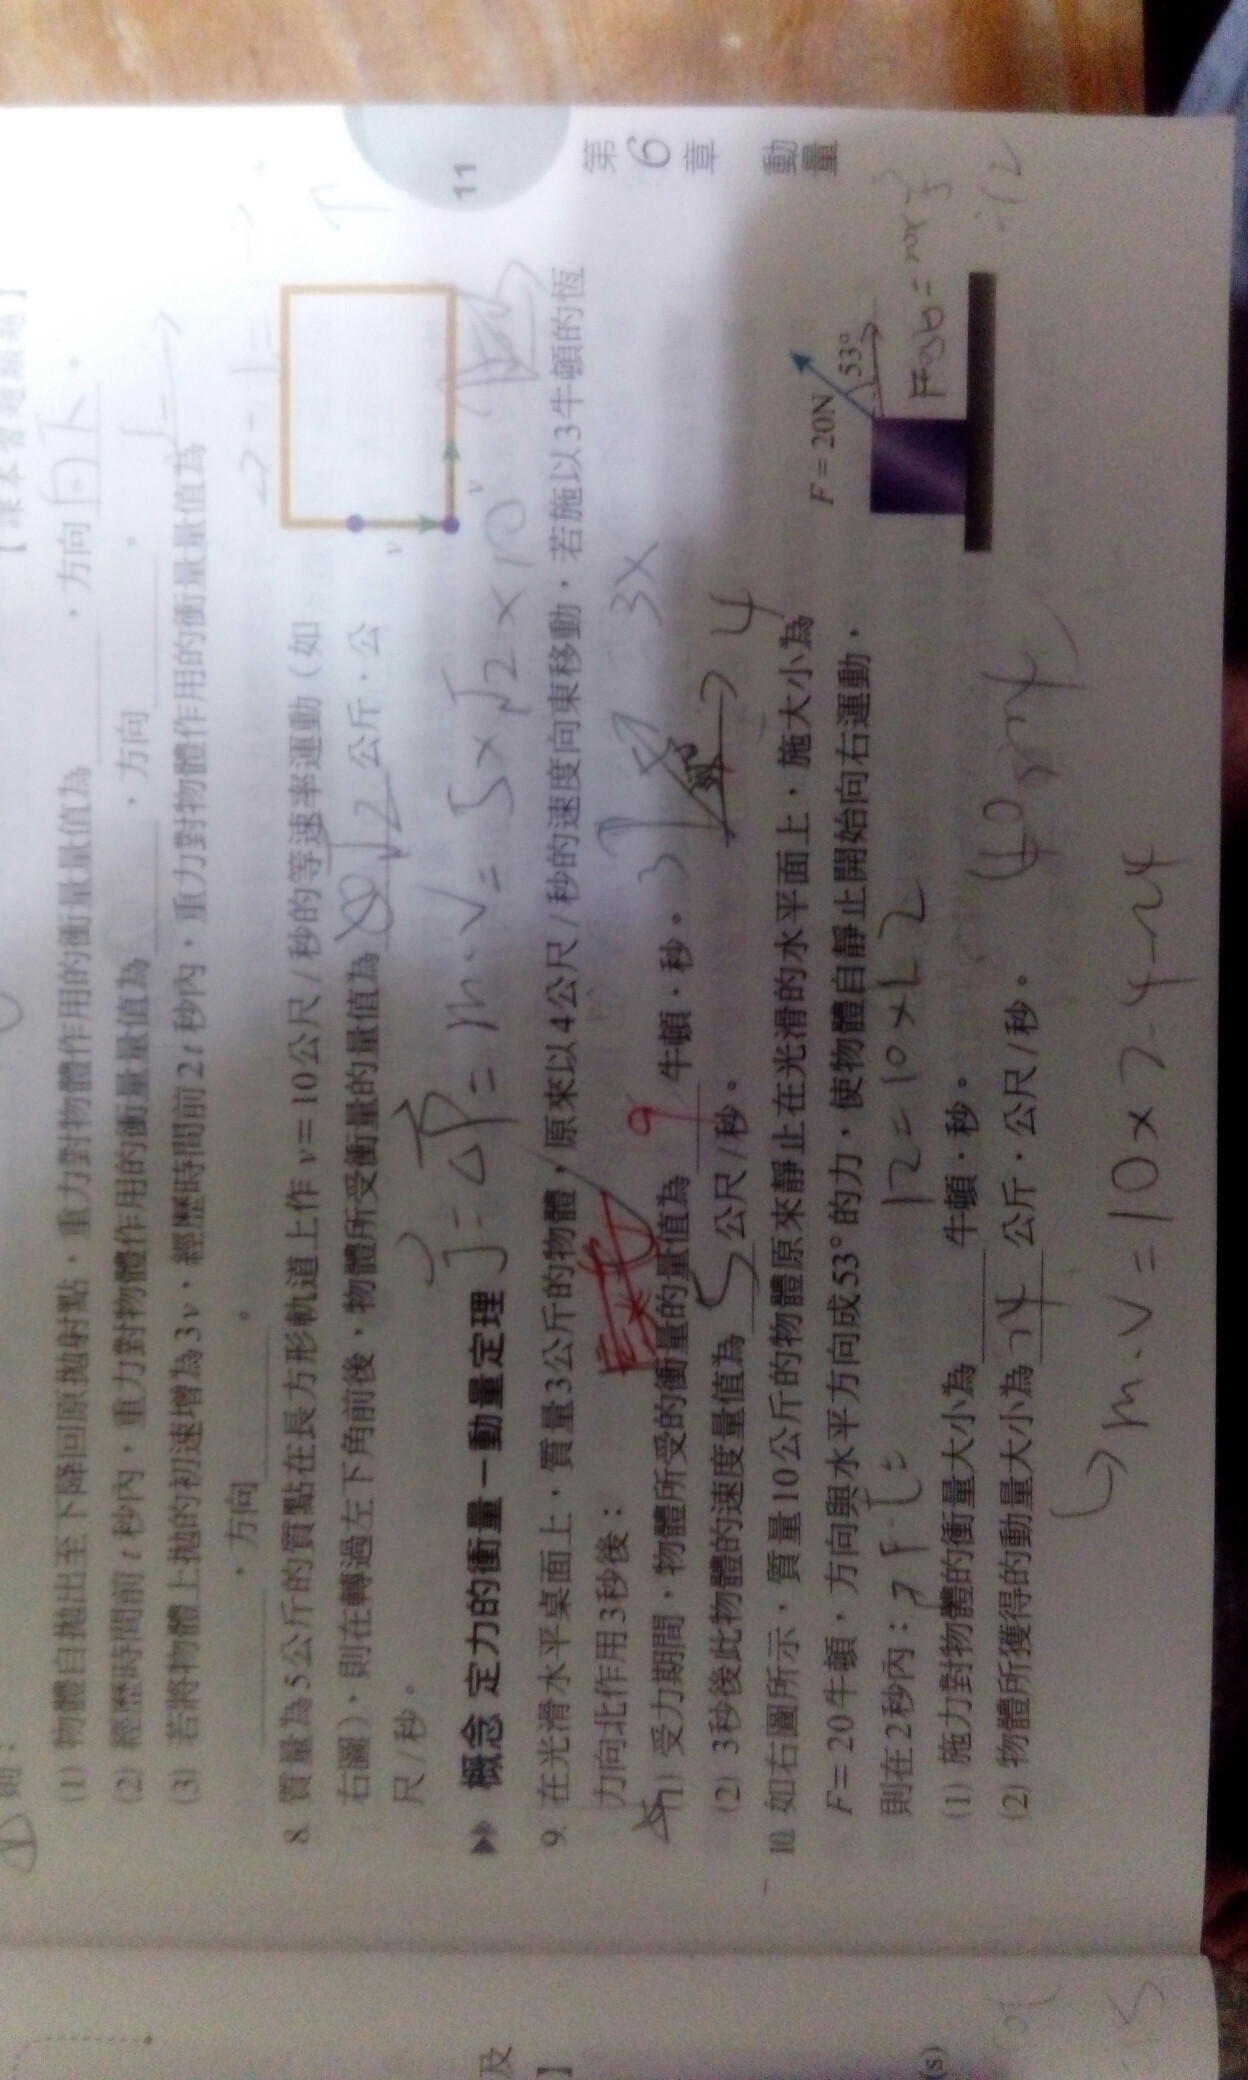 【課本習題類題】
則：
(1) 物體自拋出至下降回原拋射點，重力對物體作用的衝量量值為＿＿＿，方向 向下 。
(2) 經歷時間前 t 秒內，重力對物體作用的衝量量值為＿＿＿，方向＿＿＿。
(3) 若將物體上拋的初速增為 3v，經歷時間前 2t 秒內，重力對物體作用的衝量量值為
＿＿＿，方向＿＿＿。
8. 質量為 5 公斤的質點在長方形軌道上作 v = 10 公尺 / 秒的等速率運動（如
右圖），則在轉過左下角前後，物體所受衝量的量值為 √2 公斤．公
尺 / 秒。
v
v
J = ΔP = m·v = 5×√2×10
11
▶▶ 概念 定力的衝量－動量定理
第6章 動量
9. 在光滑水平桌面上，質量 3 公斤的物體，原來以 4 公尺 / 秒的速度向東移動，若施以 3 牛頓的恆
力向北作用 3 秒後：
(1) 受力期間，物體所受的衝量的量值為 9 牛頓．秒。
(2) 3 秒後此物體的速度量值為 5 公尺 / 秒。
3
4
10. 如右圖所示，質量 10 公斤的物體原來靜止在光滑的水平面上，施大小為
F = 20 牛頓，方向與水平方向成 53° 的力，使物體自靜止開始向右運動，
則在 2 秒內：
F·t =
12 = 10×1.2
F = 20N
53°
(1) 施力對物體的衝量大小為＿＿＿牛頓．秒。
(2) 物體所獲得的動量大小為 24 公斤．公尺 / 秒。
m·v = 10×2.4=24
及
】
(s)